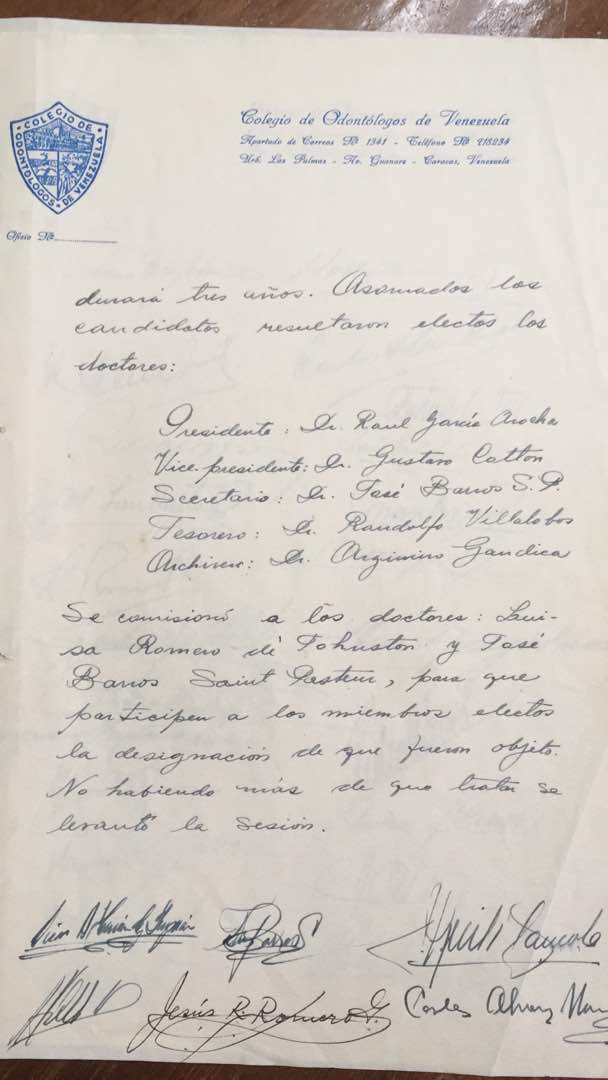 COLEGIO DE ODONTÓLOGOS DE VENEZUELA
Colegio de Odontólogos de Venezuela
Apartado de Correos Nº 1341 - Teléfono Nº 715234
Urb. Las Palmas - Av. Guanare - Caracas, Venezuela
Oficio Nº
durará tres años. Asomados los
candidatos resultaron electos los
doctores:
Presidente: Dr. Raul García Arocha
Vice-presidente: Dr. Gustavo Catton
Secretario: Dr. José Barros S.P.
Tesorero: Dr. Randolfo Villalobos
Archivero: Dr. Argimiro Gandica
Se comisionó a los doctores: Lui-
sa Romero de Johnston y José
Barros Saint Pasteur, para que
participen a los miembros electos
la designación de que fueron objeto.
No habiendo más de que tratar se
levantó la sesión.
Jesús R. Romero G.
Carlos